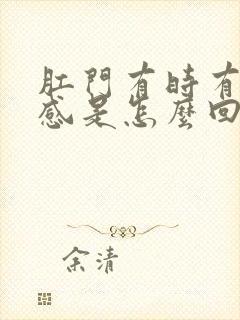 肛門有時有
感是怎麼回
余清